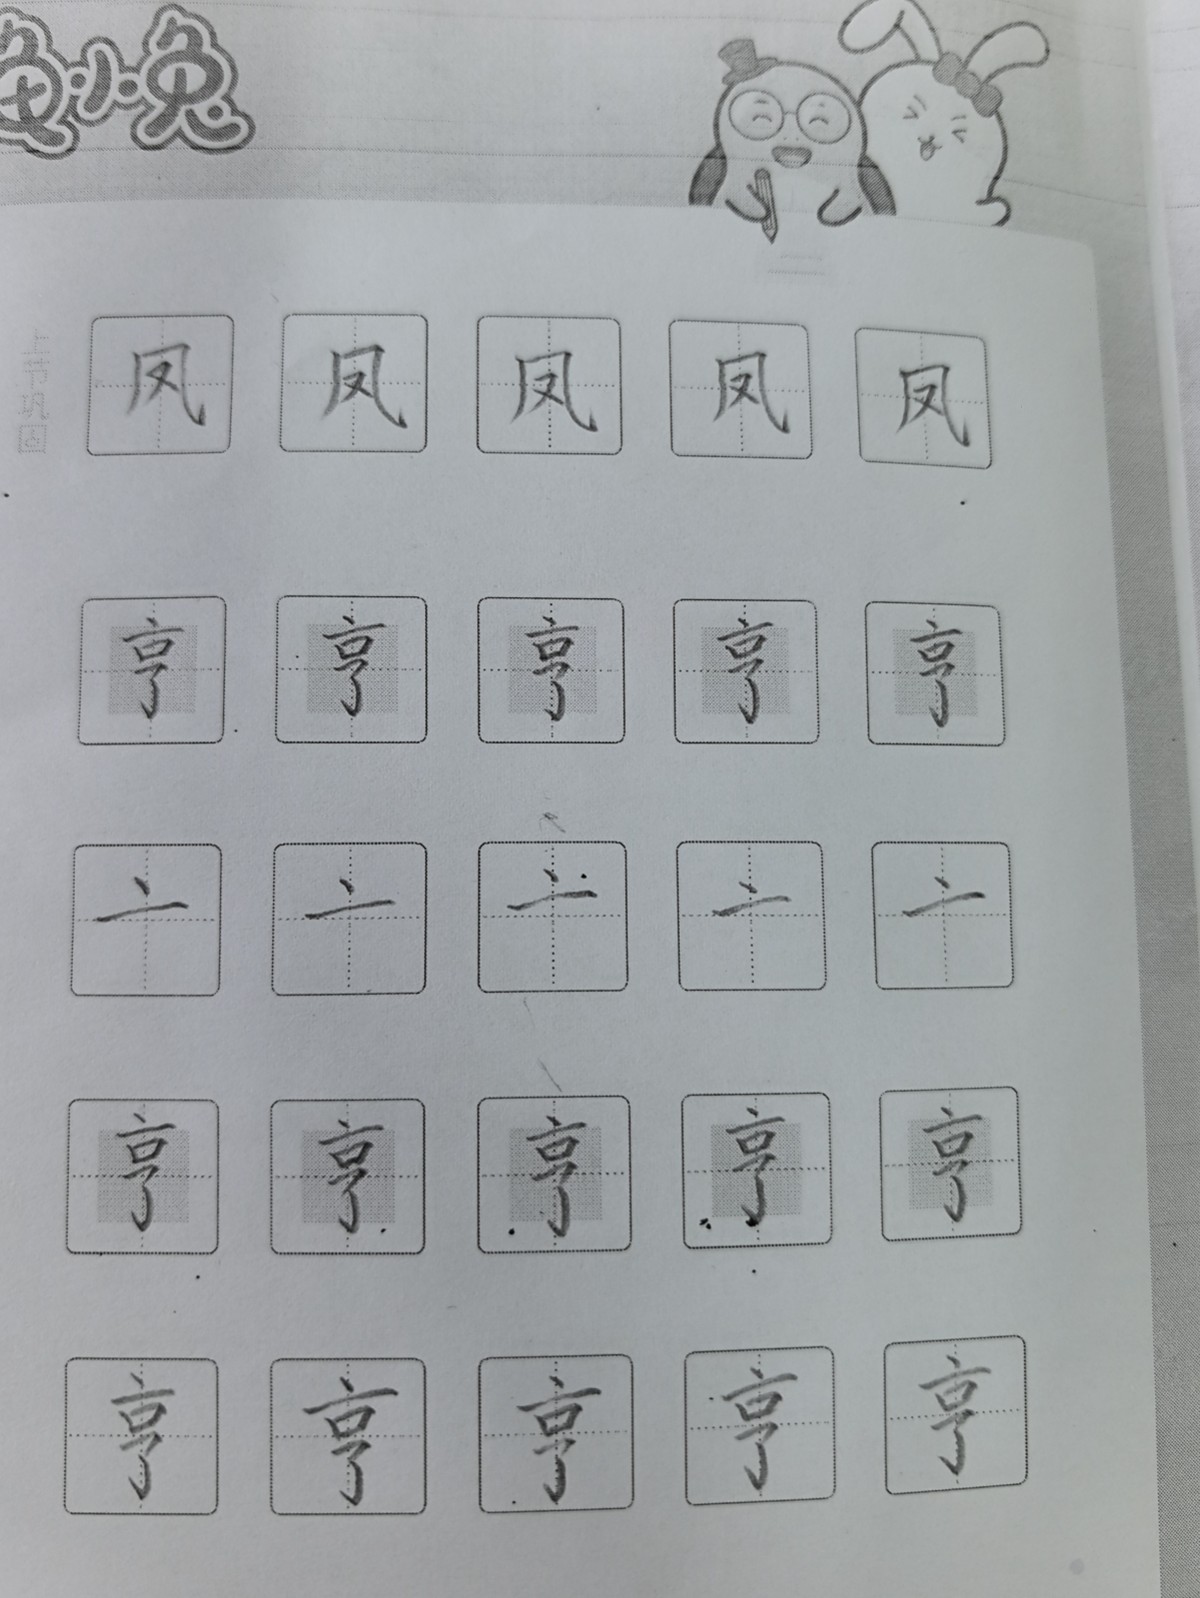 小兔
凤 凤 凤 凤 凤
亨 亨 亨 亨 亨
亠 亠 亠 亠 亠
亨 亨 亨 亨 亨
亨 亨 亨 亨 亨